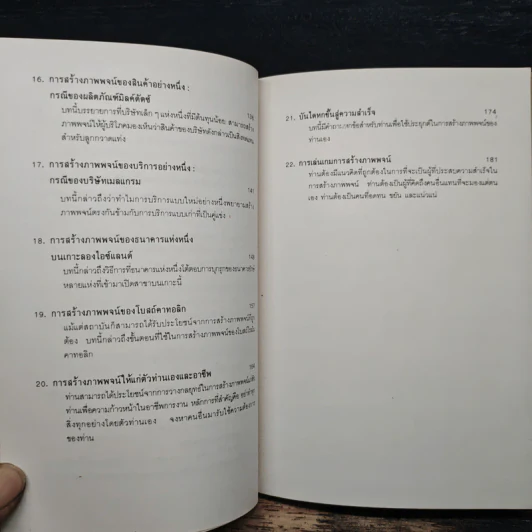 16. การสร้างภาพพจน์ของสินค้าอย่างหนึ่ง :
กรณีของผลิตภัณฑ์มิลค์ดัดซ์
บทนี้บรรยายการที่บริษัทเล็ก ๆ แห่งหนึ่งที่มีต้นทุนน้อย สามารถสร้าง
ภาพพจน์ให้ผู้บริโภคมองเห็นว่าสินค้าของบริษัทดังกล่าวเป็นสิ่งทดแทน
สำหรับลูกกวาดแท่ง
17. การสร้างภาพพจน์ของบริการอย่างหนึ่ง :
กรณีของบริษัทเมลแกรม
บทนี้กล่าวถึงว่าทำไมการบริการแบบใหม่อย่างหนึ่งพยายามสร้าง
ภาพพจน์ตรงกันข้ามกับการบริการแบบเก่าที่เป็นคู่แข่ง
18. การสร้างภาพพจน์ของธนาคารแห่งหนึ่ง
บนเกาะลองไอซ์แลนด์
บทนี้กล่าวถึงวิธีการที่ธนาคารแห่งหนึ่งโต้ตอบการบุกรุกของธนาคารยักษ์
หลายแห่งที่เข้ามาเปิดสาขาบนเกาะนี้
19. การสร้างภาพพจน์ของโบสถ์คาทอลิก
แม้แต่สถาบันก็สามารถได้รับประโยชน์จากการสร้างภาพพจน์ที่ถูก
ต้อง บทนี้กล่าวถึงขั้นตอนที่ใช้ในการสร้างภาพพจน์ของโบสถ์โรมัน
คาทอลิก
20. การสร้างภาพพจน์ให้แก่ตัวท่านเองและอาชีพ
ท่านสามารถได้ประโยชน์จากการวางกลยุทธ์ในการสร้างภาพพจน์
ท่านเพื่อความก้าวหน้าในอาชีพการงาน หลักการที่สำคัญคือ อย่าทำทุก
สิ่งทุกอย่างโดยตัวท่านเอง จงหาคนอื่นมารับใช้ความต้องการ
ของท่าน
21. บันไดหกขั้นสู่ความสำเร็จ 174
บทนี้มีคำถามหกข้อสำหรับท่านเพื่อใช้ประยุกต์ในการสร้างภาพพจน์ของ
ท่านเอง
22. การเล่นเกมการสร้างภาพพจน์ 181
ท่านต้องมีแนวคิดที่ถูกต้องในการที่จะเป็นผู้ที่ประสบความสำเร็จใน
การสร้างภาพพจน์ ท่านต้องเป็นผู้ที่คิดถึงคนอื่นแทนที่จะมองแต่ตน
เอง ท่านต้องเป็นคนที่อดทน ขยัน และแน่วแน่